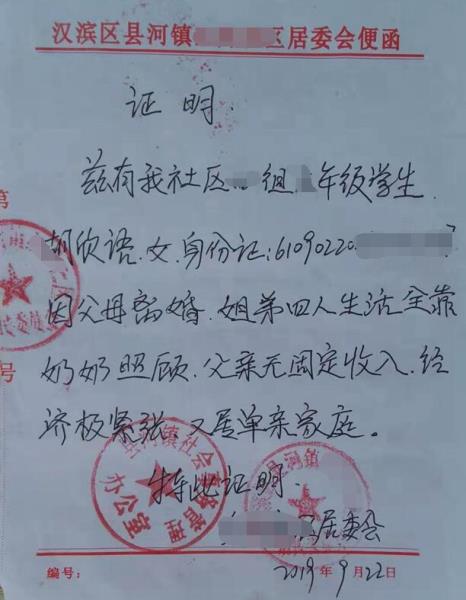 汉滨区县河镇 区居委会便函
证明.
兹有我社区 组 年级学生
胡欣语.女.身份证:61090220
因父母离婚.姐弟四人生活全靠
奶奶照顾.父亲无固定收入.经
济极紧张.又是单亲家庭。
特此证明.
居委会
编号: 2019年9月22日
第
号
县河镇社会 管理
办公室
县河镇